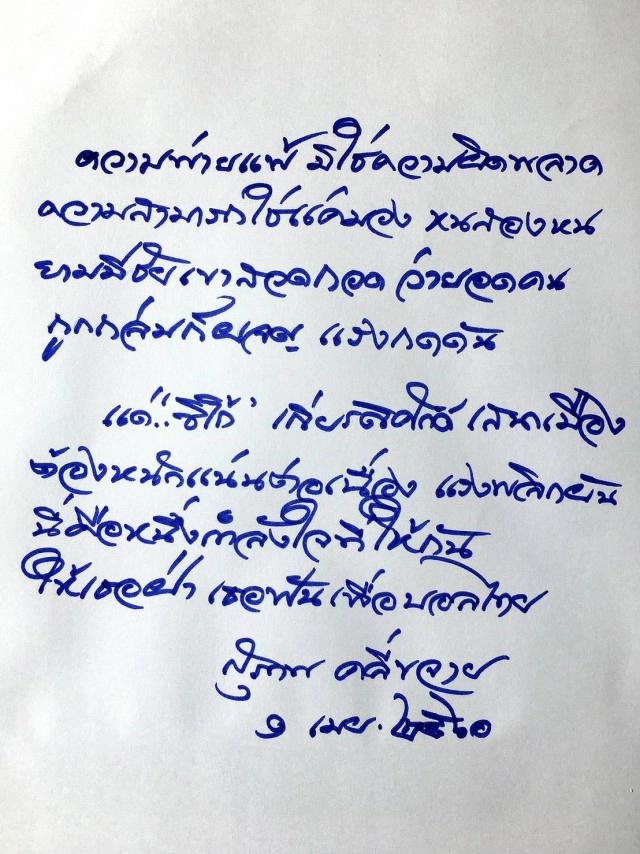 ความพ่ายแพ้ มิใช่ความผิดพลาด
ความสามารถใช่แค่มอง หนสองหน
ยามมีชัยเขาสวดกอด ว่ายอดคน
ถูกถล่มก็ผจญ แรงกดดัน
แด่..“ซิโก้” เกียรติศักดิ์ เสนาเมือง
ต้องหนักแน่นต่อเนื่อง แรงพลิกผัน
นี่คือหนึ่งกำลังใจที่ให้กัน
ให้เธอฝ่า เธอฟัน เพื่อบอลไทย
สุภาพ คลี่ขจาย
๑ เมย.